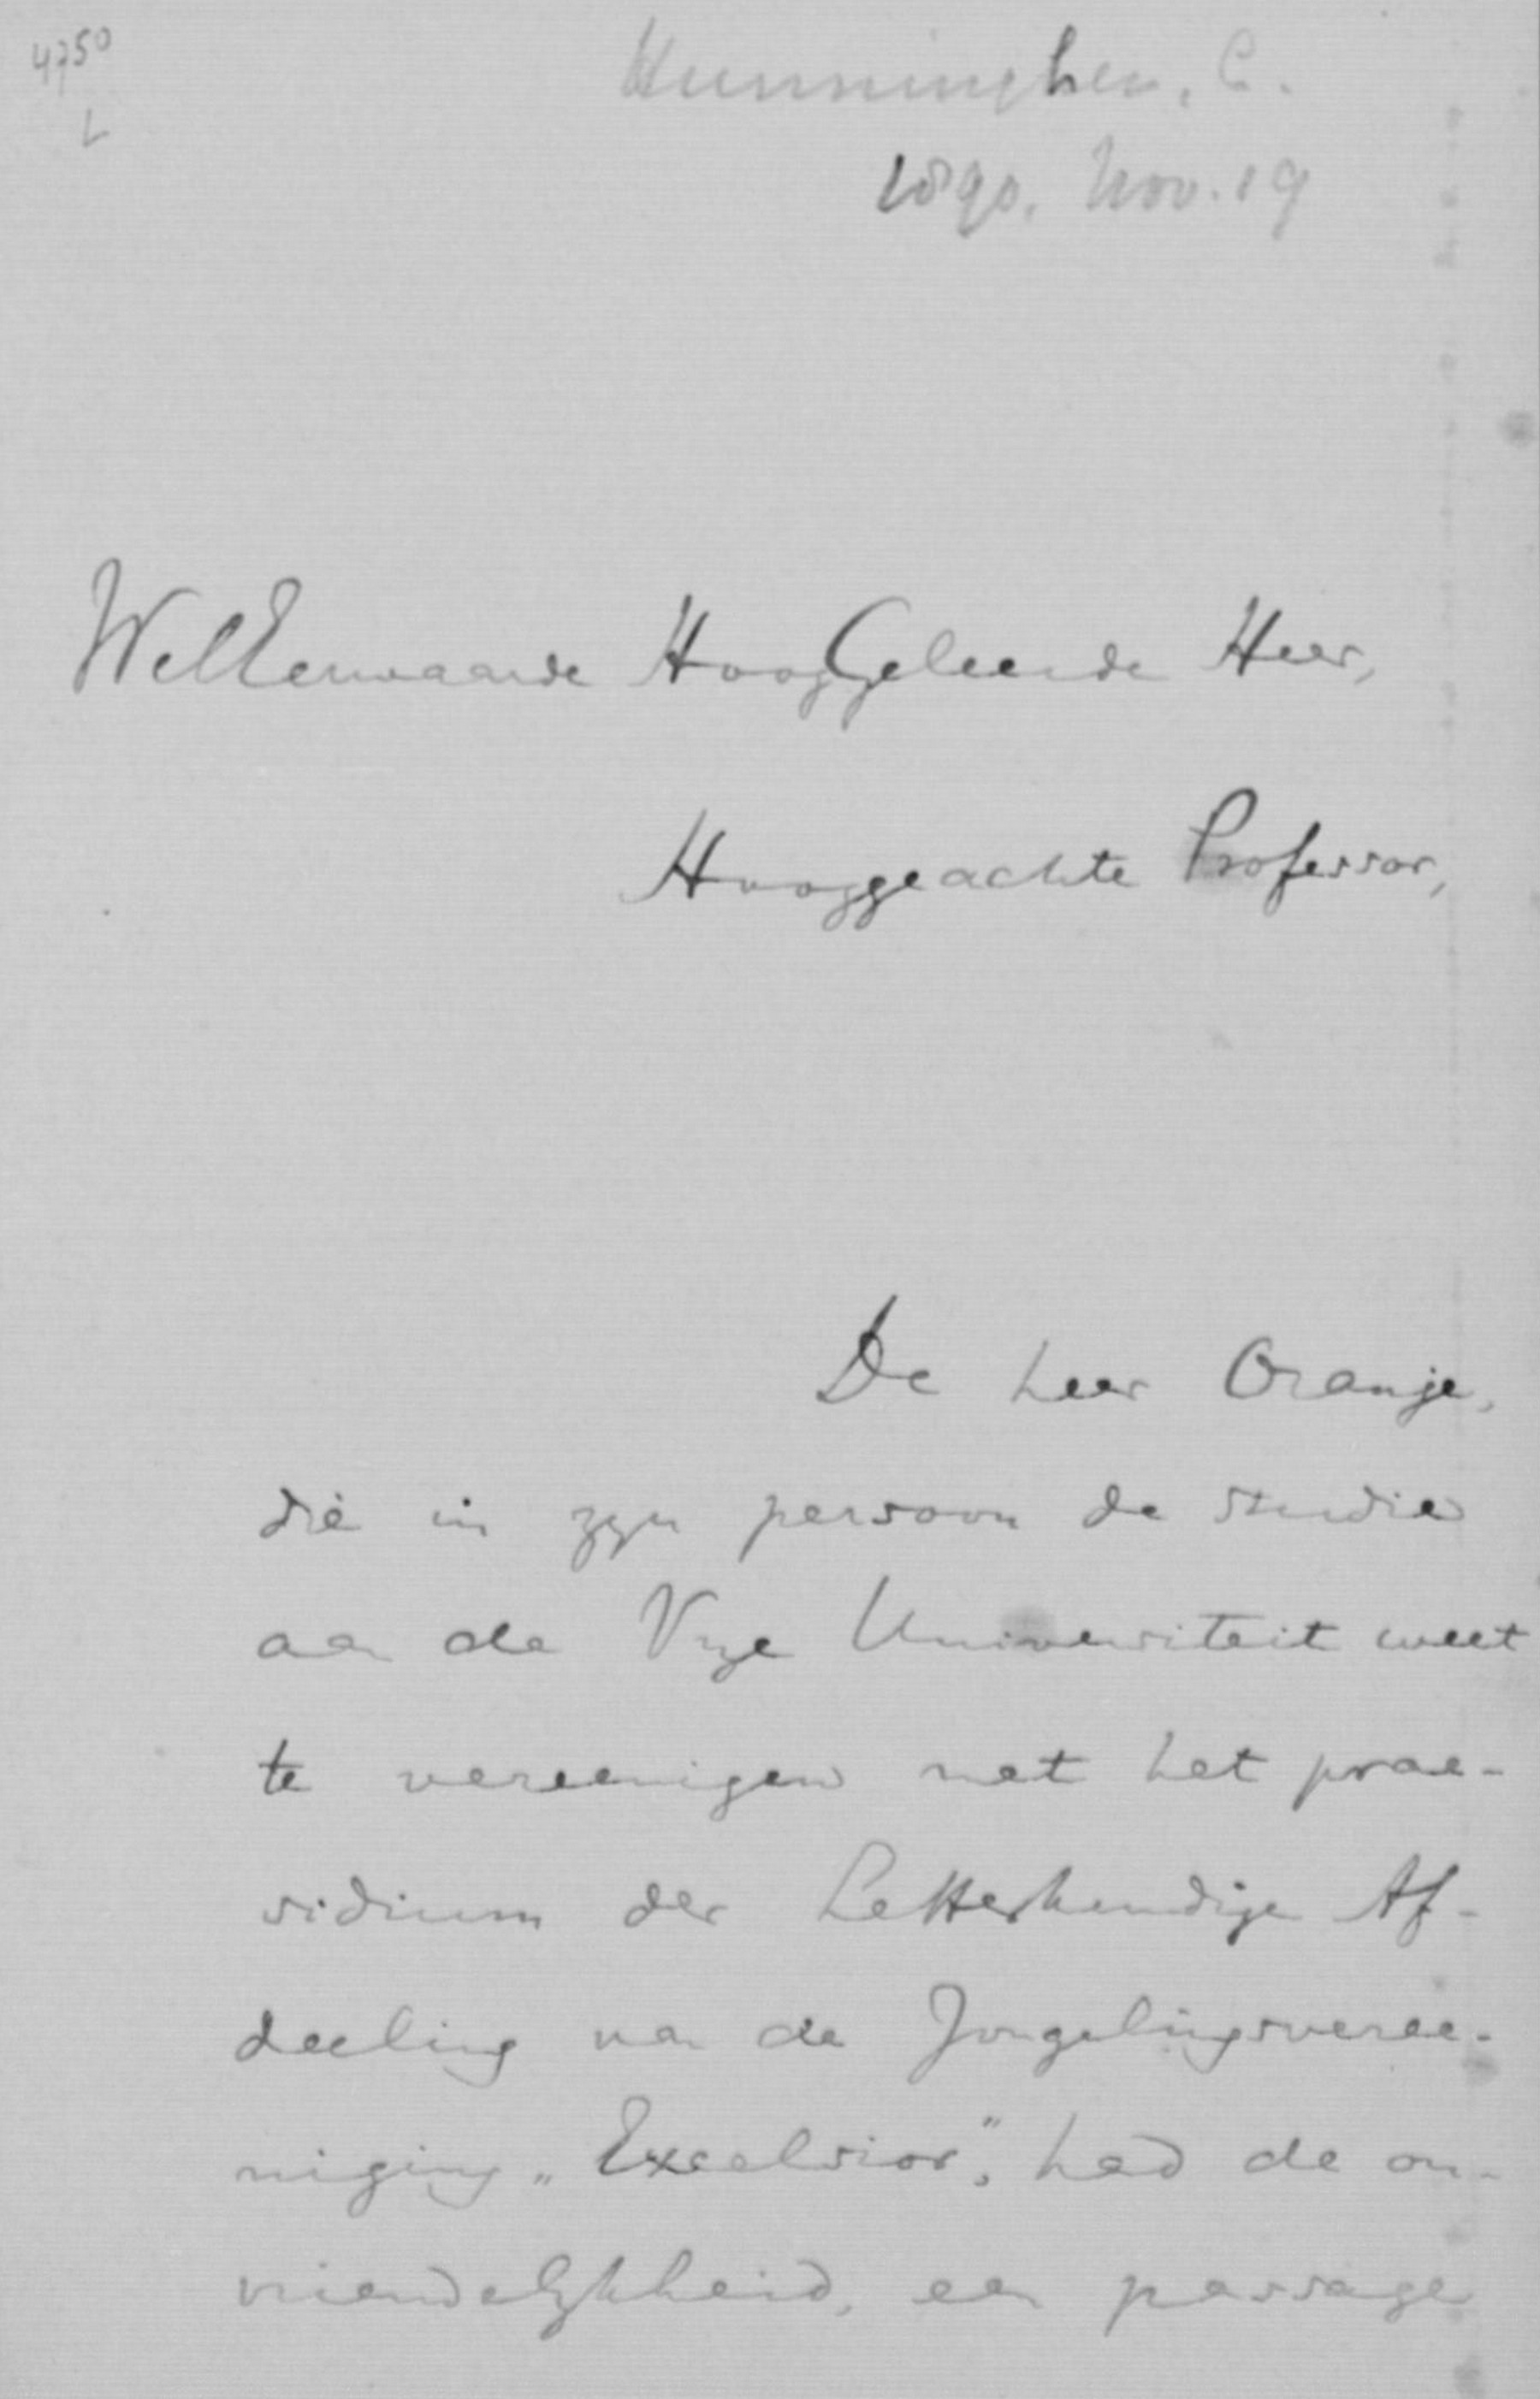 4750
L
Hunninghen, C.
1890. Nov. 19
WelEerwaarde HoogGeleerde Heer,
Hooggeachte Professor,
De heer Oranje,
die in zijn persoon de studie
aan de Vrije Universiteit weet
te vereenigen met het prae-
sidium der Letterkundige Af-
deeling van de Jongelingsveree-
niging „Excelsior", had de on-
vriendelijkheid, een passage